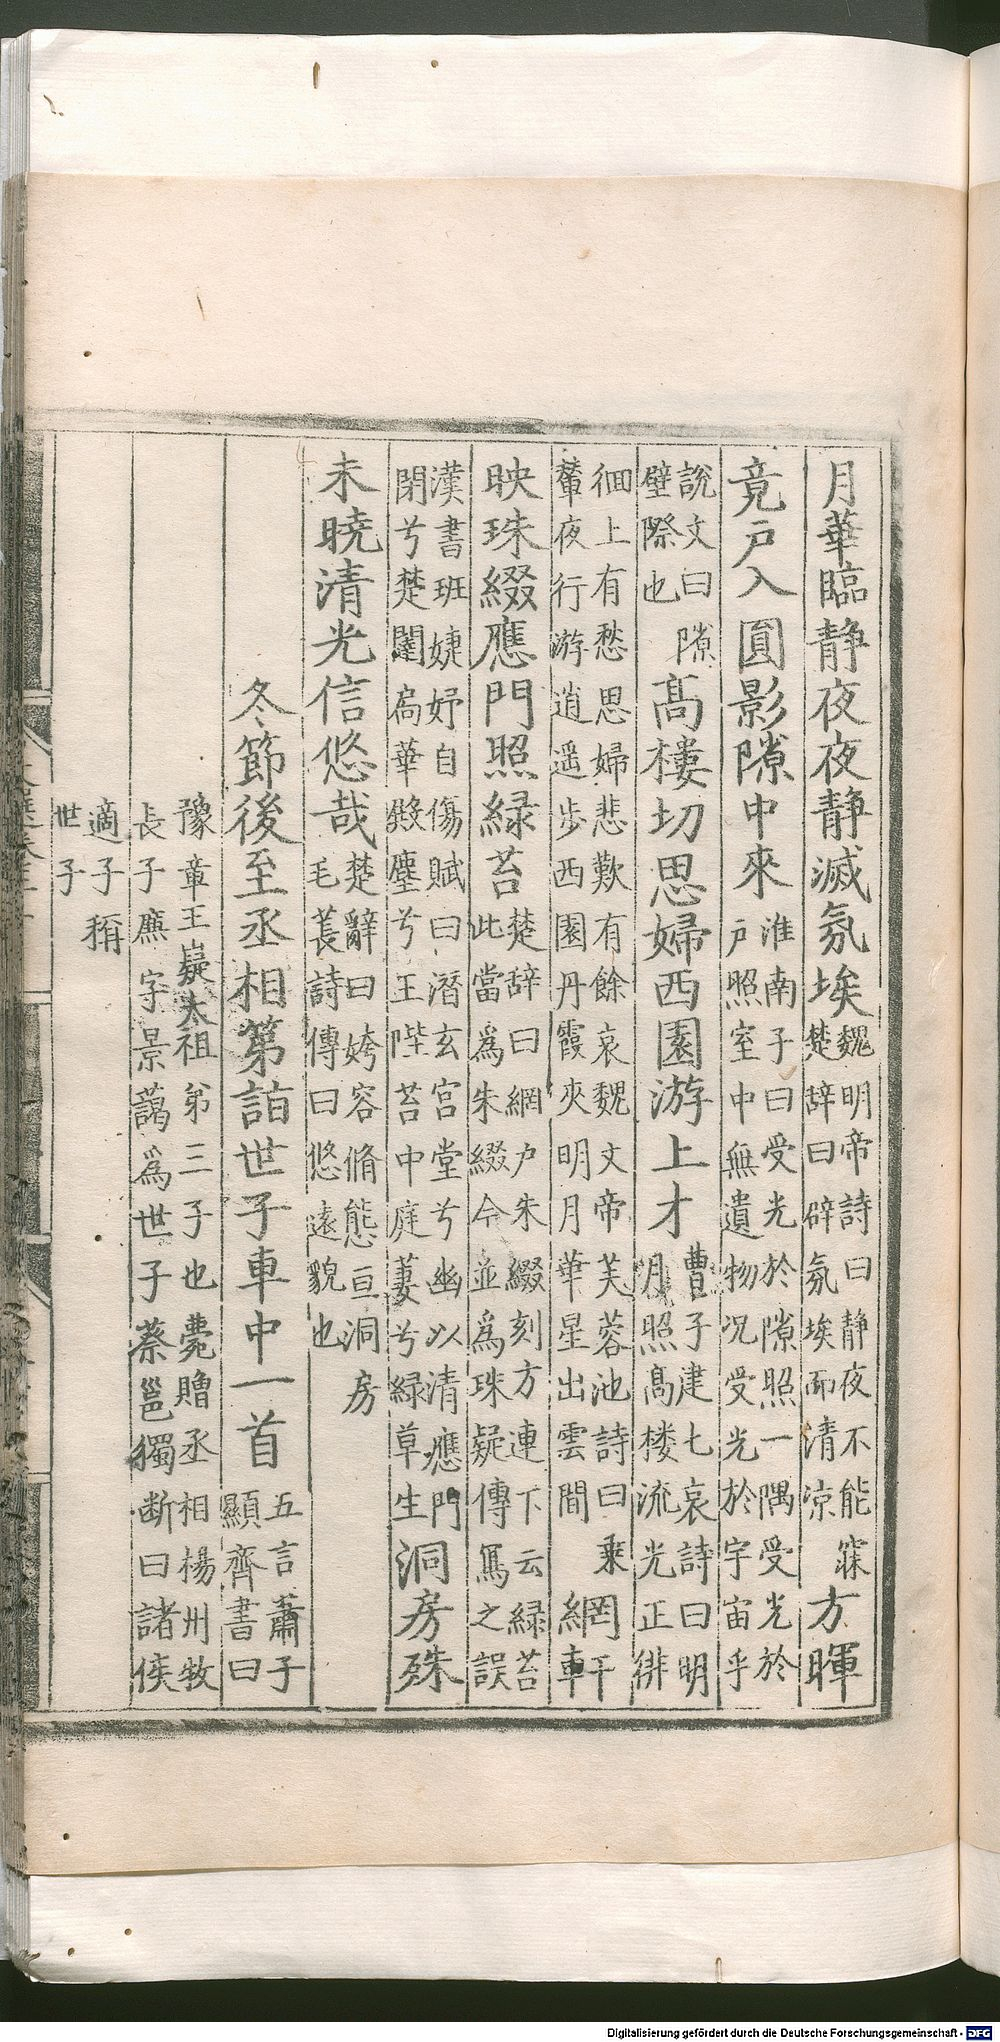 月華臨静夜夜静滅氛埃魏明帝詩曰静夜不能寐楚辞曰辟氛埃而清凉方暉
竟戶入圓影隙中來淮南子曰受光於隙照一隅受光於戶照室中無遺物况受光於宇宙乎
說文曰隙壁際也髙樓切思婦西園游上才曹子建七哀詩曰明月照髙楼流光正徘
徊上有愁思婦悲歎有餘哀魏文帝芙蓉池詩曰乗輦夜行游逍遥步西園丹霞夾明月華星出雲間網軒
映珠綴應門照緑苔楚辞曰網户朱綴刻方連下云緑苔此當爲朱綴今並爲珠疑傳冩之誤
漢書班婕妤自傷賦曰潛玄宮堂兮幽以清應門閉兮楚闥扃華殿塵兮王陛苔中庭萋兮緑草生洞房殊
未曉清光信悠哉楚辭曰姱容脩態亘洞房毛萇詩傳曰悠遠貌也
冬節後至丞相第詣世子車中一首五言蕭子顯齊書曰
豫章王嶷太祖弟三子也薨贈丞相楊州牧長子廉字景藹爲世子蔡邕獨断曰諸侯
適子稱世子
Digitalisierung gefördert durch die Deutsche Forschungsgemeinschaft - DFG